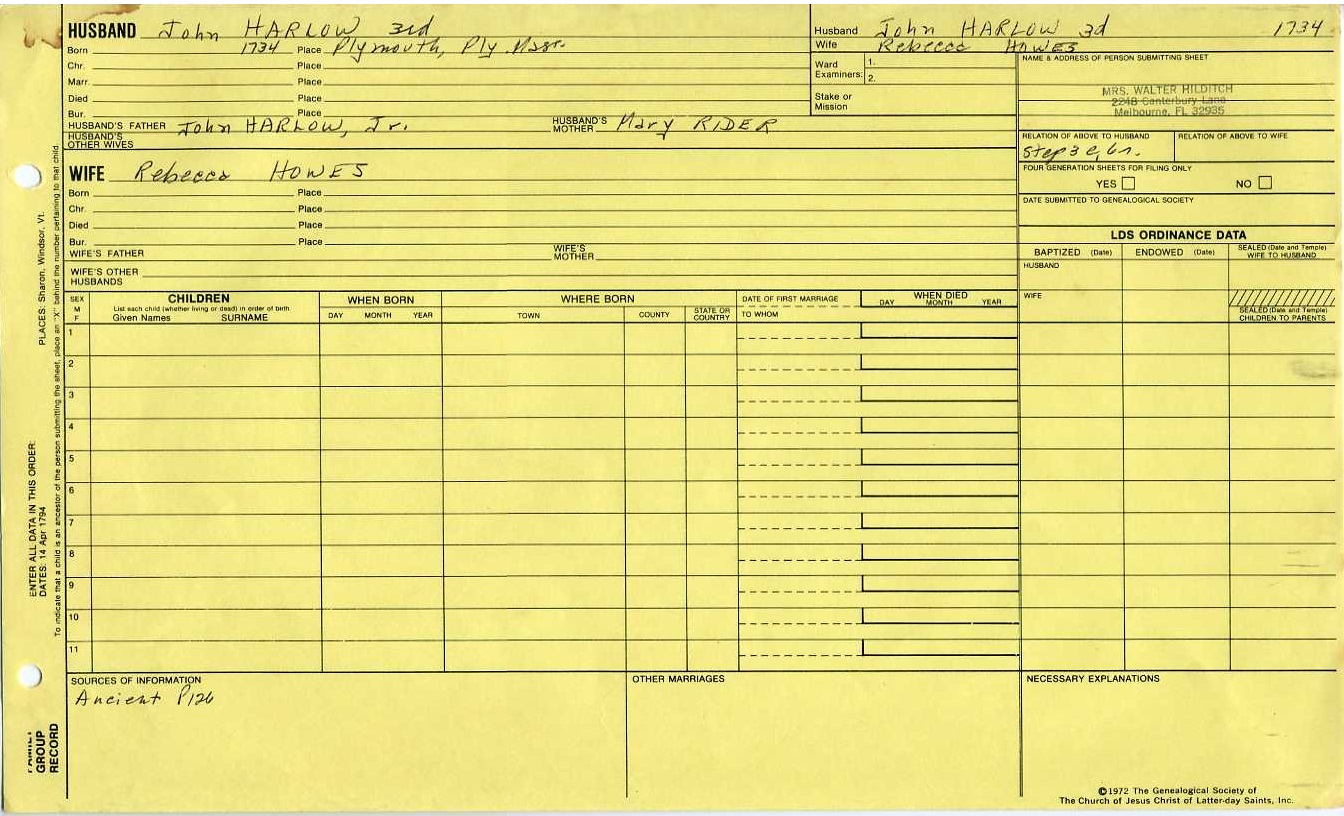 HUSBAND John HARLOW 3rd
Born 1734 Place Plymouth, Ply. Mass.
Chr. Place
Marr. Place
Died Place
Bur. Place
HUSBAND'S FATHER John HARLOW, Jr. HUSBAND'S MOTHER Mary RIDER
HUSBAND'S OTHER WIVES
WIFE Rebecca HOWES
Born Place
Chr. Place
Died Place
Bur. Place
WIFE'S FATHER WIFE'S MOTHER
WIFE'S OTHER HUSBANDS
Husband John HARLOW 3d 1734
Wife Rebecca HOWES
Ward Examiners: 1.
2.
Stake or Mission
NAME & ADDRESS OF PERSON SUBMITTING SHEET
MRS. WALTER HILDITCH
2248 Canterbury Lane
Melbourne, FL 32935
RELATION OF ABOVE TO HUSBAND RELATION OF ABOVE TO WIFE
Step 3
FOUR GENERATION SHEETS FOR FILING ONLY
YES NO
DATE SUBMITTED TO GENEALOGICAL SOCIETY
LDS ORDINANCE DATA
BAPTIZED (Date) ENDOWED (Date) SEALED (Date and Temple) WIFE TO HUSBAND
HUSBAND
WIFE
SEALED (Date and Temple) CHILDREN TO PARENTS
SEX M F CHILDREN WHEN BORN WHERE BORN DATE OF FIRST MARRIAGE WHEN DIED
List each child (whether living or dead) in order of birth
Given Names SURNAME DAY MONTH YEAR TOWN COUNTY STATE OR COUNTRY TO WHOM DAY MONTH YEAR
1
2
3
4
5
6
7
8
9
10
11
SOURCES OF INFORMATION OTHER MARRIAGES NECESSARY EXPLANATIONS
Ancient P126
©1972 The Genealogical Society of
The Church of Jesus Christ of Latter-day Saints, Inc.
ENTER ALL DATA IN THIS ORDER:
DATES: 14 Apr 1794 PLACES: Sharon, Windsor, Vt.
To indicate that a child is an ancestor of the person submitting the sheet, place an "X" behind the number pertaining to that child.
FAMILY
GROUP
RECORD